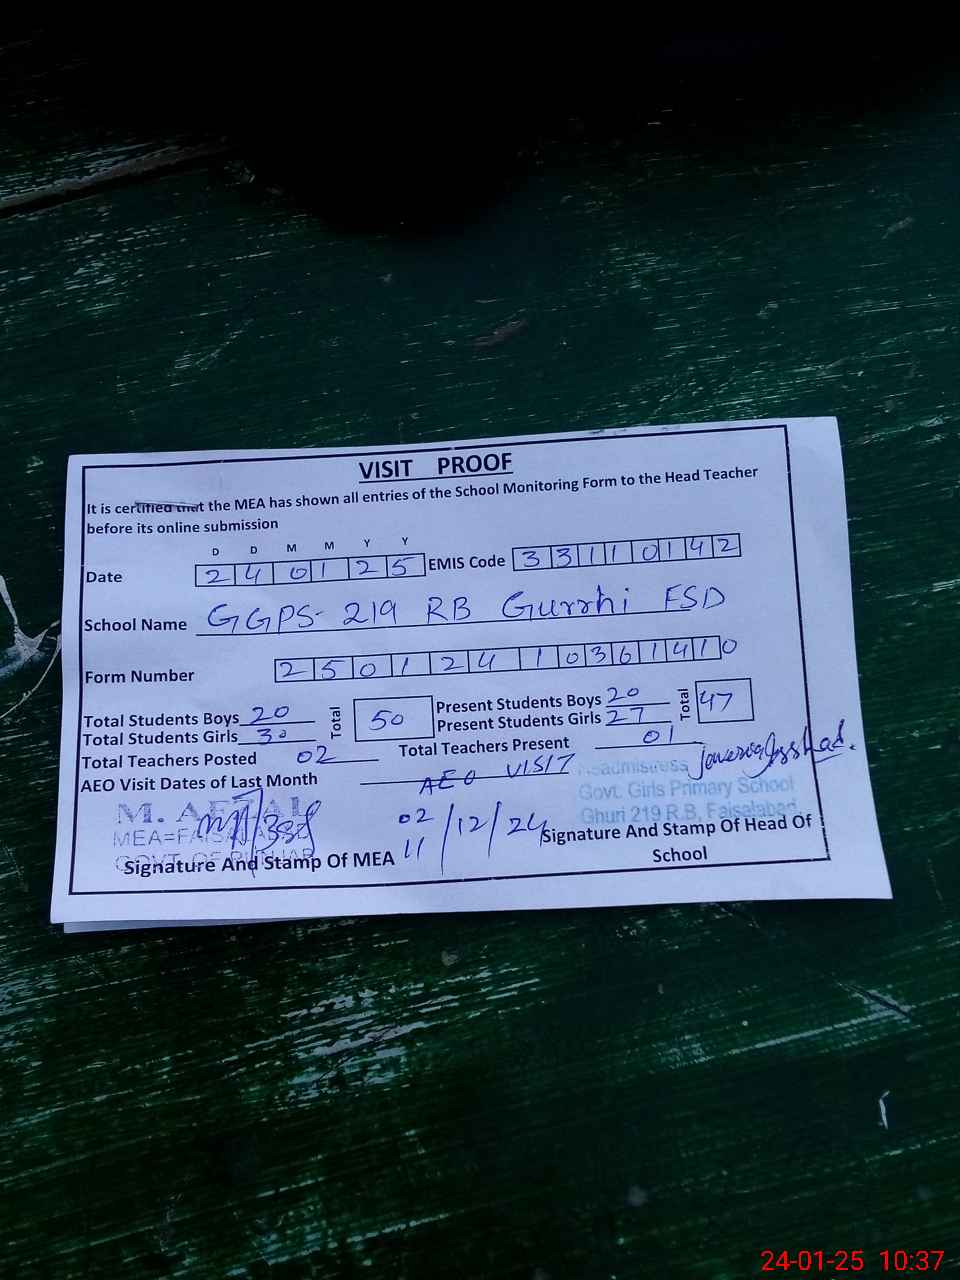 VISIT PROOF
It is certified that the MEA has shown all entries of the School Monitoring Form to the Head Teacher
before its online submission
D D M M Y Y
Date 2 4 0 1 2 5 EMIS Code 3 3 1 1 0 1 4 2
School Name GGPS-219 RB Gurrhi FSD
Form Number 2 5 0 1 2 4 1 0 3 6 1 4 1 0
Total Students Boys 20 Total 50 Present Students Boys 20 Total 47
Total Students Girls 30 Present Students Girls 27
Total Teachers Posted 02 Total Teachers Present 01
AEO Visit Dates of Last Month AEO VISIT
Headmistress
Govt. Girls Primary School
Ghuri 219 R.B, Faisalabad.
M. AFZAL
MEA=FAISALABAD
GOVT. OF PUNJAB
02
11 /12/24
Signature And Stamp Of MEA
Signature And Stamp Of Head Of
School
24-01-25 10:37